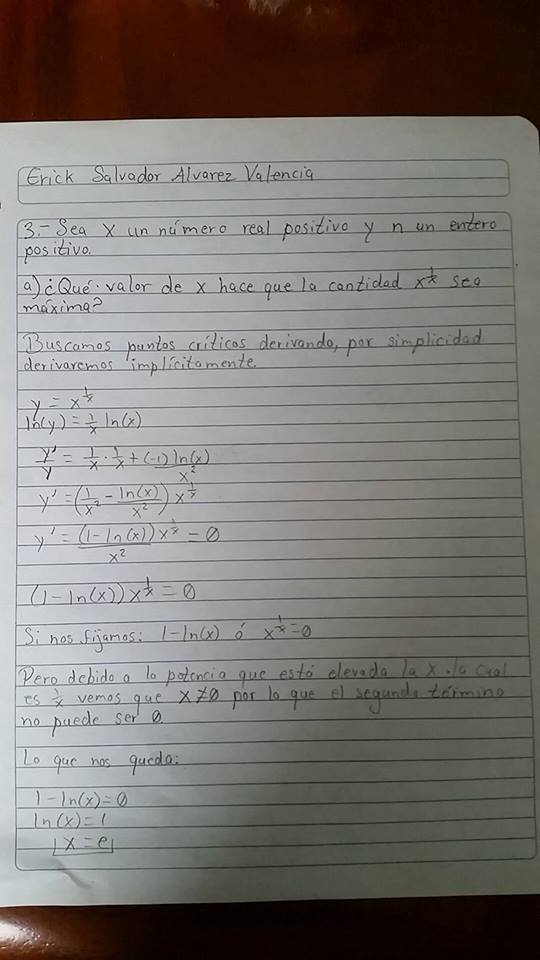 Erick Salvador Alvarez Valencia
3.- Sea X un número real positivo y n un entero
positivo.
a) ¿Qué valor de x hace que la cantidad x^(1/x) sea
máxima?
Buscamos puntos críticos derivando, por simplicidad
derivaremos implícitamente.
y = x^(1/x)
ln(y) = 1/x ln(x)
y'/y = 1/x · 1/x + (-1) ln(x)/x^2
y' = (1/x^2 - ln(x)/x^2) x^(1/x)
y' = (1-ln(x)) x^(1/x)/x^2 = 0
(1-ln(x)) x^(1/x) = 0
Si nos fijamos: 1-ln(x) ó x^(1/x) = 0
Pero debido a la potencia que está elevada la X la cual
es 1/x vemos que X≠0 por lo que el segundo término
no puede ser 0
Lo que nos queda:
1-ln(x)=0
ln(x)=1
x=e